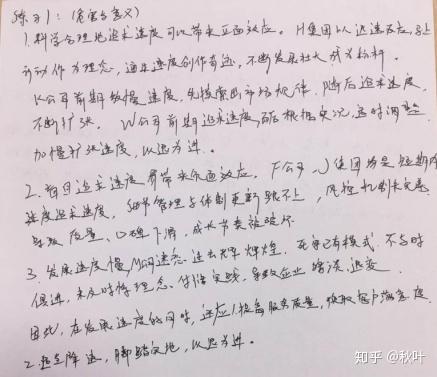 练习1：(危害与意义)
1.科学合理地追求速度可以带来正面效应。H集团以迅速反应,马上
行动作为理念，通过速度创作奇迹，不断发展壮大成为标杆。
K公司前期放慢速度，先摸索出市场规律，随后追求速度，
不断扩张。W公司前期追求速度,而后根据实况，适时调整
加慢扩张速度，以退为进。
2.盲目追求速度会带来负面效应，F公司、J集团均是短期内
速度追求速度，细节管理与体制更新跟不上，风控机制未完善
导致质量、口碑下滑，成长节奏被破坏
3.发展速度慢,M公司迷恋过去辉煌，死守已有模式，不与时
俱进，未及时将理念付诸实践，导致企业 溃，退变
因此，在发展速度的同时，还应1.提高服务质量，换取客户满意度
2.适至降速，脚踏实地，以退为进。
知乎 @秋叶